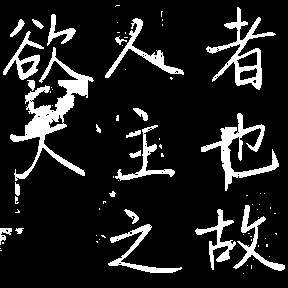 者也故
人主之
欲天